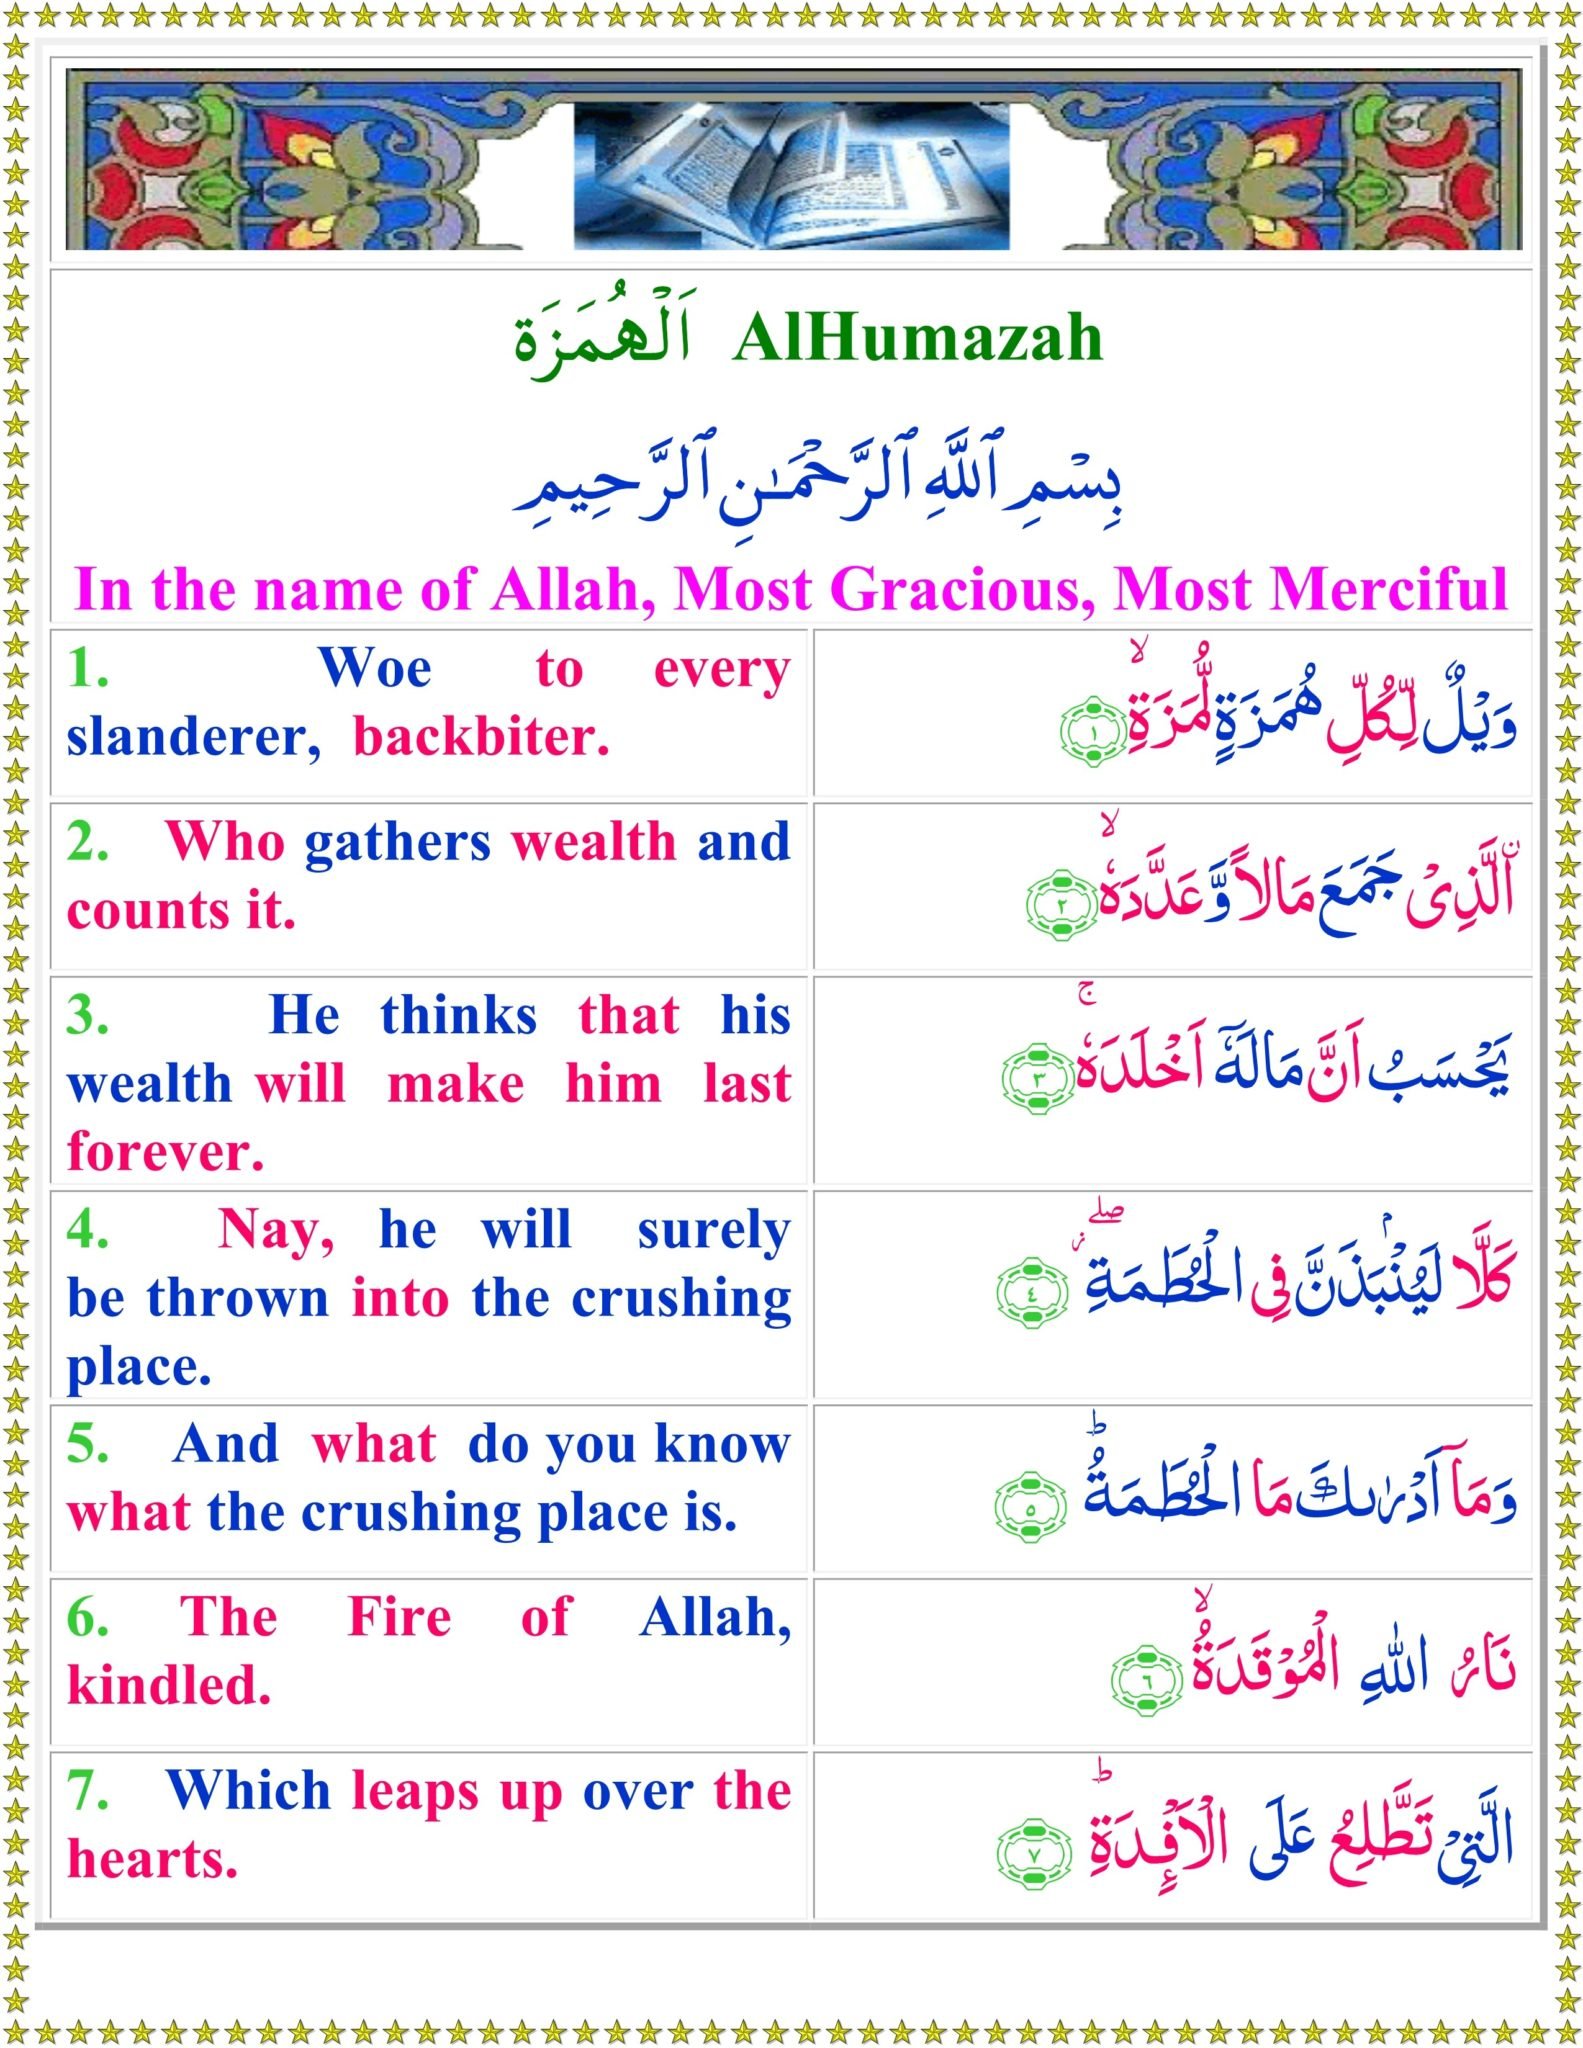 اَلْهُمَزَة AlHumazah
بِسْمِ ٱللَّهِ ٱلرَّحْمَـٰنِ ٱلرَّحِيمِ
In the name of Allah, Most Gracious, Most Merciful
1. Woe to every
slanderer, backbiter.
وَيْلٌ لِّكُلِّ هُمَزَةٍ لُّمَزَةٍ ۙ ﴿١﴾
2. Who gathers wealth and
counts it.
ۨالَّذِىْ جَمَعَ مَالاً وَّ عَدَّدَهٗ ۙ ﴿٢﴾
3. He thinks that his
wealth will make him last
forever.
يَحْسَبُ اَنَّ مَالَهٗۤ اَخْلَدَهٗ ۚ ﴿٣﴾
4. Nay, he will surely
be thrown into the crushing
place.
كَلَّا لَيُنْۢبَذَنَّ فِى الْحُطَمَةِ ۖ ﴿٤﴾
5. And what do you know
what the crushing place is.
وَمَاۤ اَدْرٰٮكَ مَا الْحُطَمَةُ ؕ ﴿٥﴾
6. The Fire of Allah,
kindled.
نَارُ اللّٰهِ الْمُوْقَدَةُ ۙ ﴿٦﴾
7. Which leaps up over the
hearts.
الَّتِىْ تَطَّلِعُ عَلَى الْاَفْـِٕدَةِ ؕ ﴿٧﴾